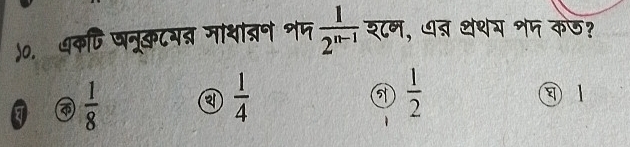 ১০. একটি অনুক্রমের সাধারণ পদ 1/2ⁿ⁻¹ হলে, এর প্রথম পদ কত?
ঘ ক 1/8 খ 1/4 গ 1/2 ঘ 1